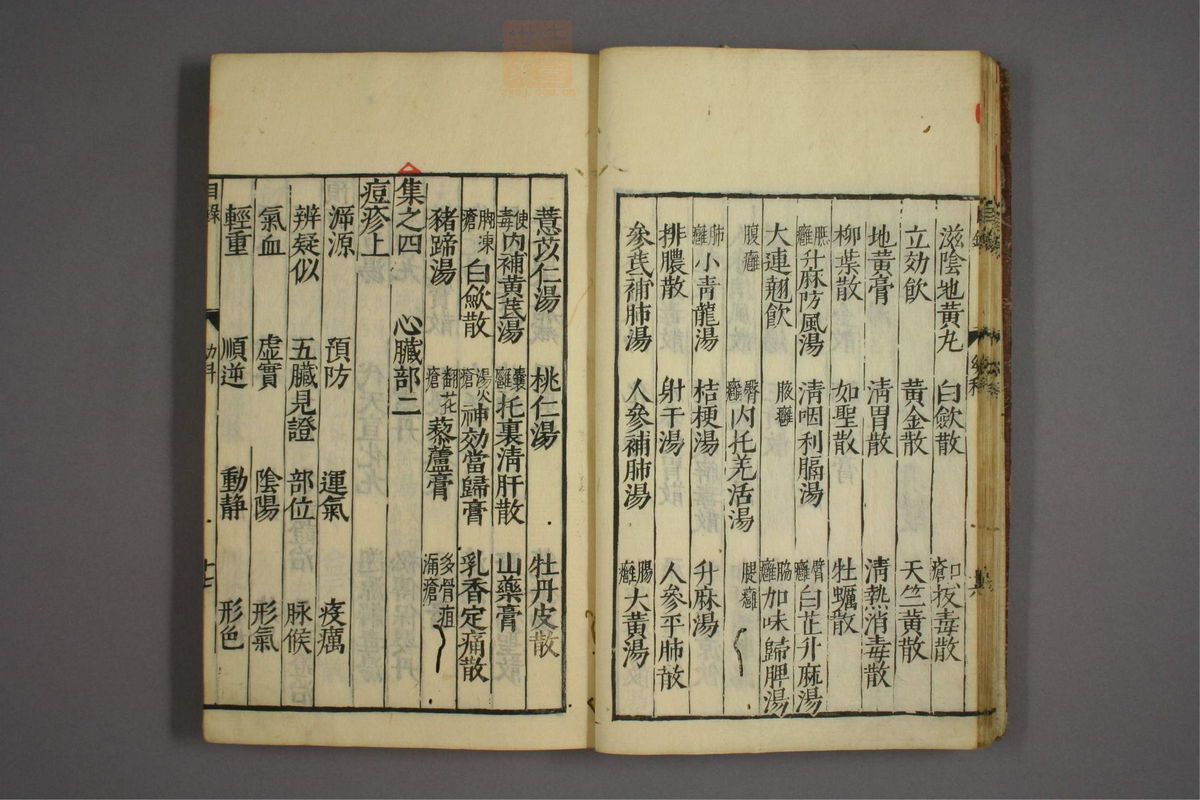 滋陰地黃丸 白斂散 口瘡拔毒散
立効飲 黃金散 天竺黃散
地黃膏 清胃散 清熱消毒散
柳葉散 如聖散 牡蠣散
升麻防風湯 清咽利膈湯 臂癰白芷升麻湯
大連翹飲 腋癰 脇癰加味歸脾湯
腹癰 臀癰內托羌活湯 腿癰
肺癰小青龍湯 桔梗湯 升麻湯
排膿散 射干湯 人參平肺散
參茋補肺湯 人參補肺湯 腸癰大黃湯
薏苡仁湯 桃仁湯 牡丹皮散
便毒內補黃茋湯 囊癰托裏清肝散 山藥膏
凍瘡白斂散 湯火瘡神効當歸膏 乳香定痛散
豬蹄湯 翻花瘡藜蘆膏 多骨疽 漏瘡
集之四 心臟部二
痘疹上
溯源 預防 運氣 疫癘
辨疑似 五臟見證 部位 脉候
氣血 虛實 陰陽 形氣
輕重 順逆 動靜 形色
目錄 幼科 十七